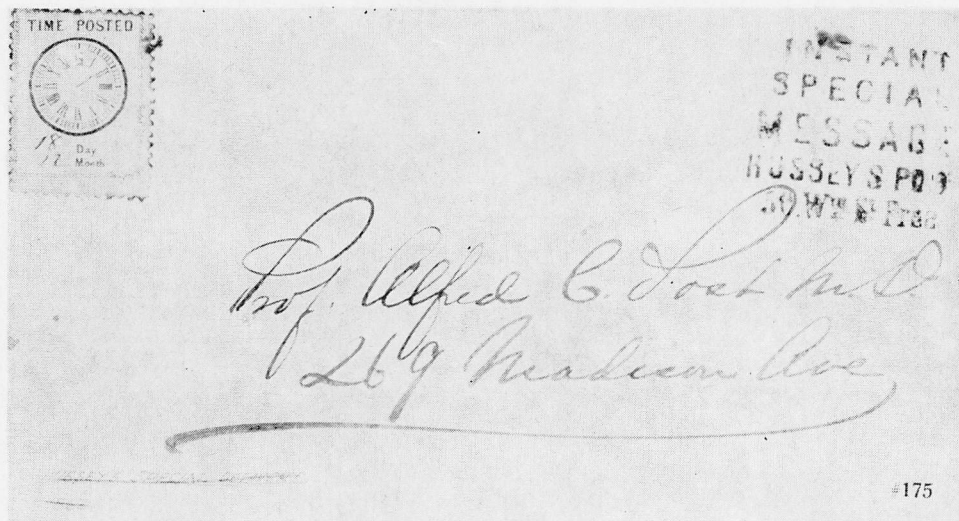 TIME POSTED
18 Day
Month
INSTANT
SPECIAL
MESSAGE
HUSSEYS PO
50 Wm St Free
Prof. Alfred C. Post M.D.
269 Madison Ave
#175